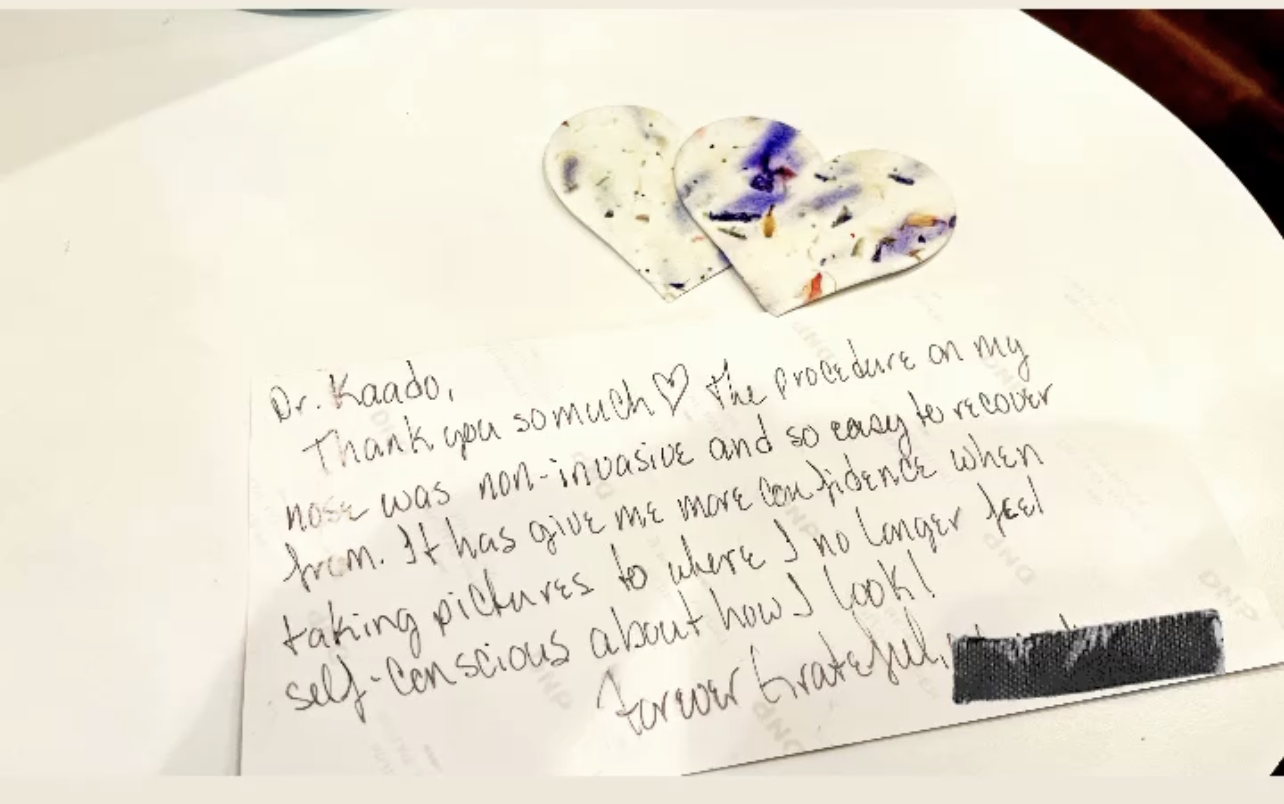 Dr. Kaado,
Thank you so much ♡ The procedure on my
nose was non-invasive and so easy to recover
from. It has give me more confidence when
taking pictures to where I no longer feel
self-conscious about how I look!
Forever Grateful,
DNP
DNP
DNP
DNP
DNP
DNP